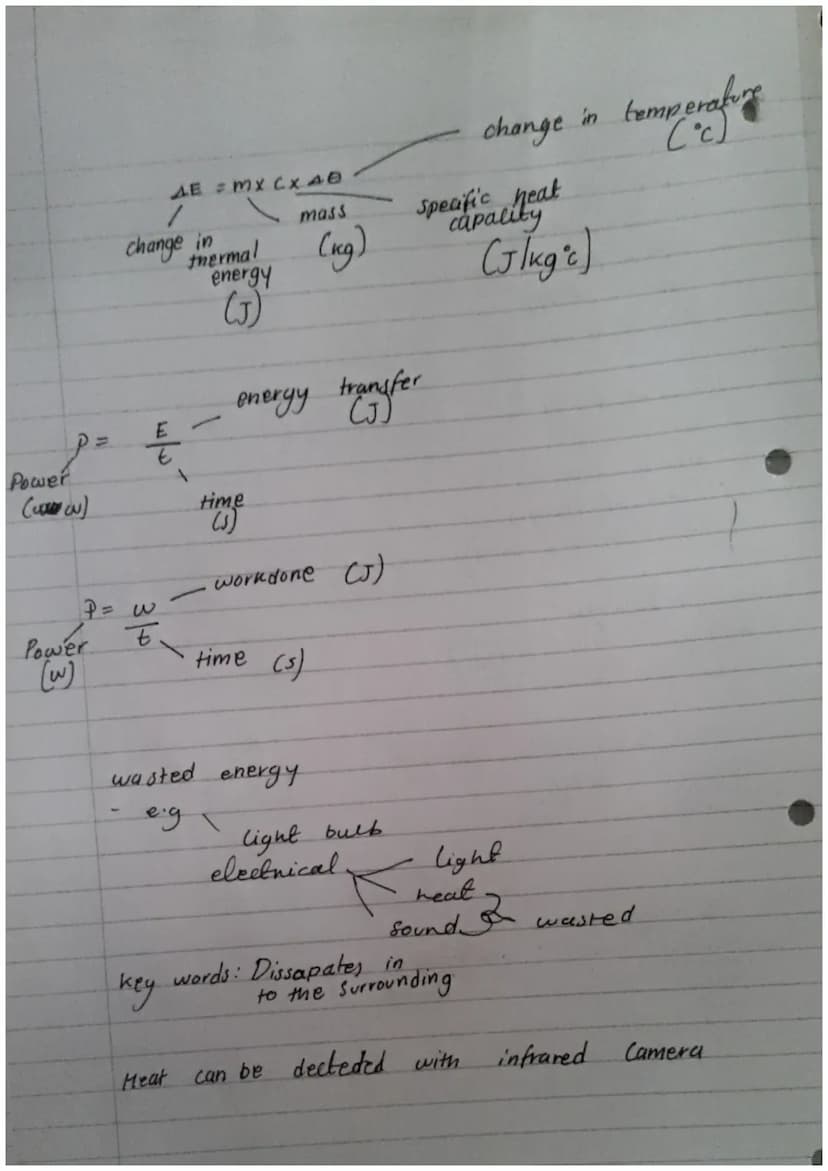 change in temperature
(°C)
ΔE = m x c x Δθ
mass
(kg)
specific heat
capacity
(J/kg°C)
change in
thermal
energy
(J)
energy transfer
(J)
P = E
t
Power
(w)
time
(s)
workdone (J)
P = w
t
Power
(w)
time (s)
wasted energy
- e.g
light bulb
electrical
light
heat
sound
wasted
key words: Dissapates in
to the surrounding
Heat can be decteded with infrared camera